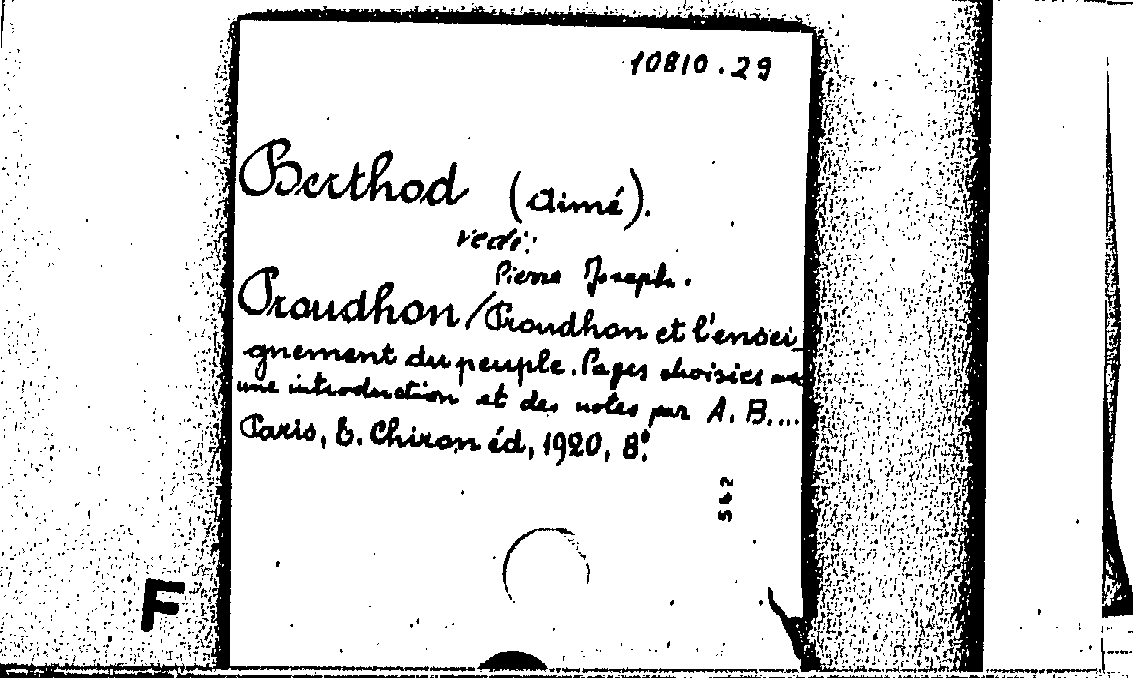 10810.29
Berthod (Aimé).
vedi:
Pierre Joseph.
Proudhon/Proudhon et l'ensei_
gnement du peuple. Pages choisies avec
une introduction et des notes par A. B....
Paris, E. Chiron éd, 1920, 8°.
562
F